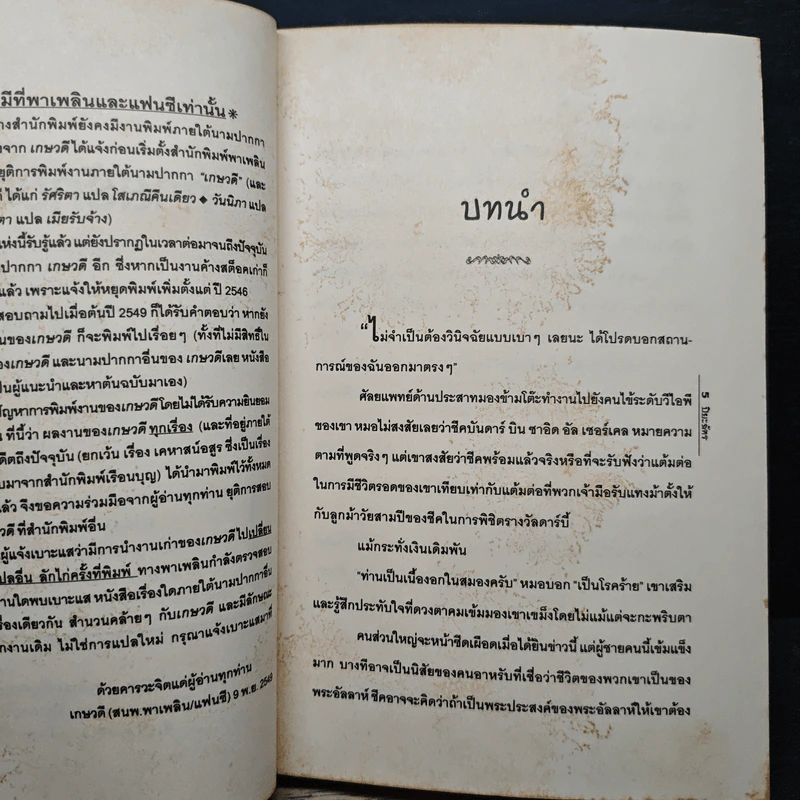 มีที่พาเพลินและแฟนซีเท่านั้น*
างสำนักพิมพ์ยังคงมีงานพิมพ์ภายใต้นามปากกา
งจาก เกษวดี ได้แจ้งก่อนเริ่มตั้งสำนักพิมพ์พาเพลิน
ยุติการพิมพ์งานภายใต้นามปากกา "เกษวดี" (และ
ดี ได้แก่ รัศริตา แปล โสเภณีคืนเดียว ◆ วันนิภา แปล
ตา แปล เมียรับจ้าง)
แห่งนี้รับรู้แล้ว แต่ยังปรากฏในเวลาต่อมาจนถึงปัจจุบัน
ปากกา เกษวดี อีก ซึ่งหากเป็นงานค้างสต็อคเก่าก็
แล้ว เพราะแจ้งให้หยุดพิมพ์เพิ่มตั้งแต่ ปี 2546
สอบถามไปเมื่อต้นปี 2549 ก็ได้รับคำตอบว่า หากยัง
นของเกษวดี ก็จะพิมพ์ไปเรื่อยๆ (ทั้งที่ไม่มีสิทธิ์ใน
องเกษวดี และนามปากกาอื่นของ เกษวดีเลย หนังสือ
ป็นผู้แนะนำและหาต้นฉบับมาเอง)
ปัญหาการพิมพ์งานของเกษวดีโดยไม่ได้รับความยินยอม
น ที่นี้ว่า ผลงานของเกษวดี ทุกเรื่อง (และที่อยู่ภายใต้
ดีตถึงปัจจุบัน (ยกเว้น เรื่อง เคหาสน์อสูร ซึ่งเป็นเรื่อง
บมาจากสำนักพิมพ์เรือนบุญ) ได้นำมาพิมพ์ไว้ทั้งหมด
แล้ว จึงขอความร่วมมือจากผู้อ่านทุกท่าน ยุติการสอบ
วดี ที่สำนักพิมพ์อื่น
ผู้แจ้งเบาะแสว่ามีการนำงานเก่าของเกษวดีไปเปลี่ยน
ปลอื่น ลักไก่ครั้งที่พิมพ์ ทางพาเพลินกำลังตรวจสอบ
านใดพบเบาะแส หนังสือเรื่องใดภายใต้นามปากกาอื่น
รื่องเดียวกัน สำนวนคล้ายๆ กับเกษวดี และมีลักษณะ
กงานเดิม ไม่ใช่การแปลใหม่ กรุณาแจ้งเบาะแสมาที่
ด้วยคารวะจิตแด่ผู้อ่านทุกท่าน
เกษวดี (สนพ.พาเพลิน/แฟนซี) 9 พ.ย. 2549
บทนำ
"ไม่จำเป็นต้องวินิจฉัยแบบเบาๆ เลยนะ ได้โปรดบอกสถาน-
การณ์ของฉันออกมาตรงๆ"
ศัลยแพทย์ด้านประสาทมองข้ามโต๊ะทำงานไปยังคนไข้ระดับวีไอพี
ของเขา หมอไม่สงสัยเลยว่าชีคบันดาร์ บิน ซาอิด อัล เซอร์เคล หมายความ
ตามที่พูดจริงๆ แต่เขาสงสัยว่าชีคพร้อมแล้วจริงหรือที่จะรับฟังว่าแต้มต่อ
ในการมีชีวิตรอดของเขาเทียบเท่ากับแต้มต่อที่พวกเจ้ามือรับแทงม้าตั้งให้
กับลูกม้าวัยสามปีของชีคในการพิชิตรางวัลดาร์บี้
แม้กระทั่งเงินเดิมพัน
"ท่านเป็นเนื้องอกในสมองครับ" หมอบอก "เป็นโรคร้าย" เขาเสริม
และรู้สึกประทับใจที่ดวงตาคมเข้มมองเขาเขม็งโดยไม่แม้แต่จะกะพริบตา
คนส่วนใหญ่จะหน้าซีดเผือดเมื่อได้ยินข่าวนี้ แต่ผู้ชายคนนี้เข้มแข็ง
มาก บางทีอาจเป็นนิสัยของคนอาหรับที่เชื่อว่าชีวิตของพวกเขาเป็นของ
พระอัลลาห์ ชีคอาจจะคิดว่าถ้าเป็นพระประสงค์ของพระอัลลาห์ให้เขาต้อง
5